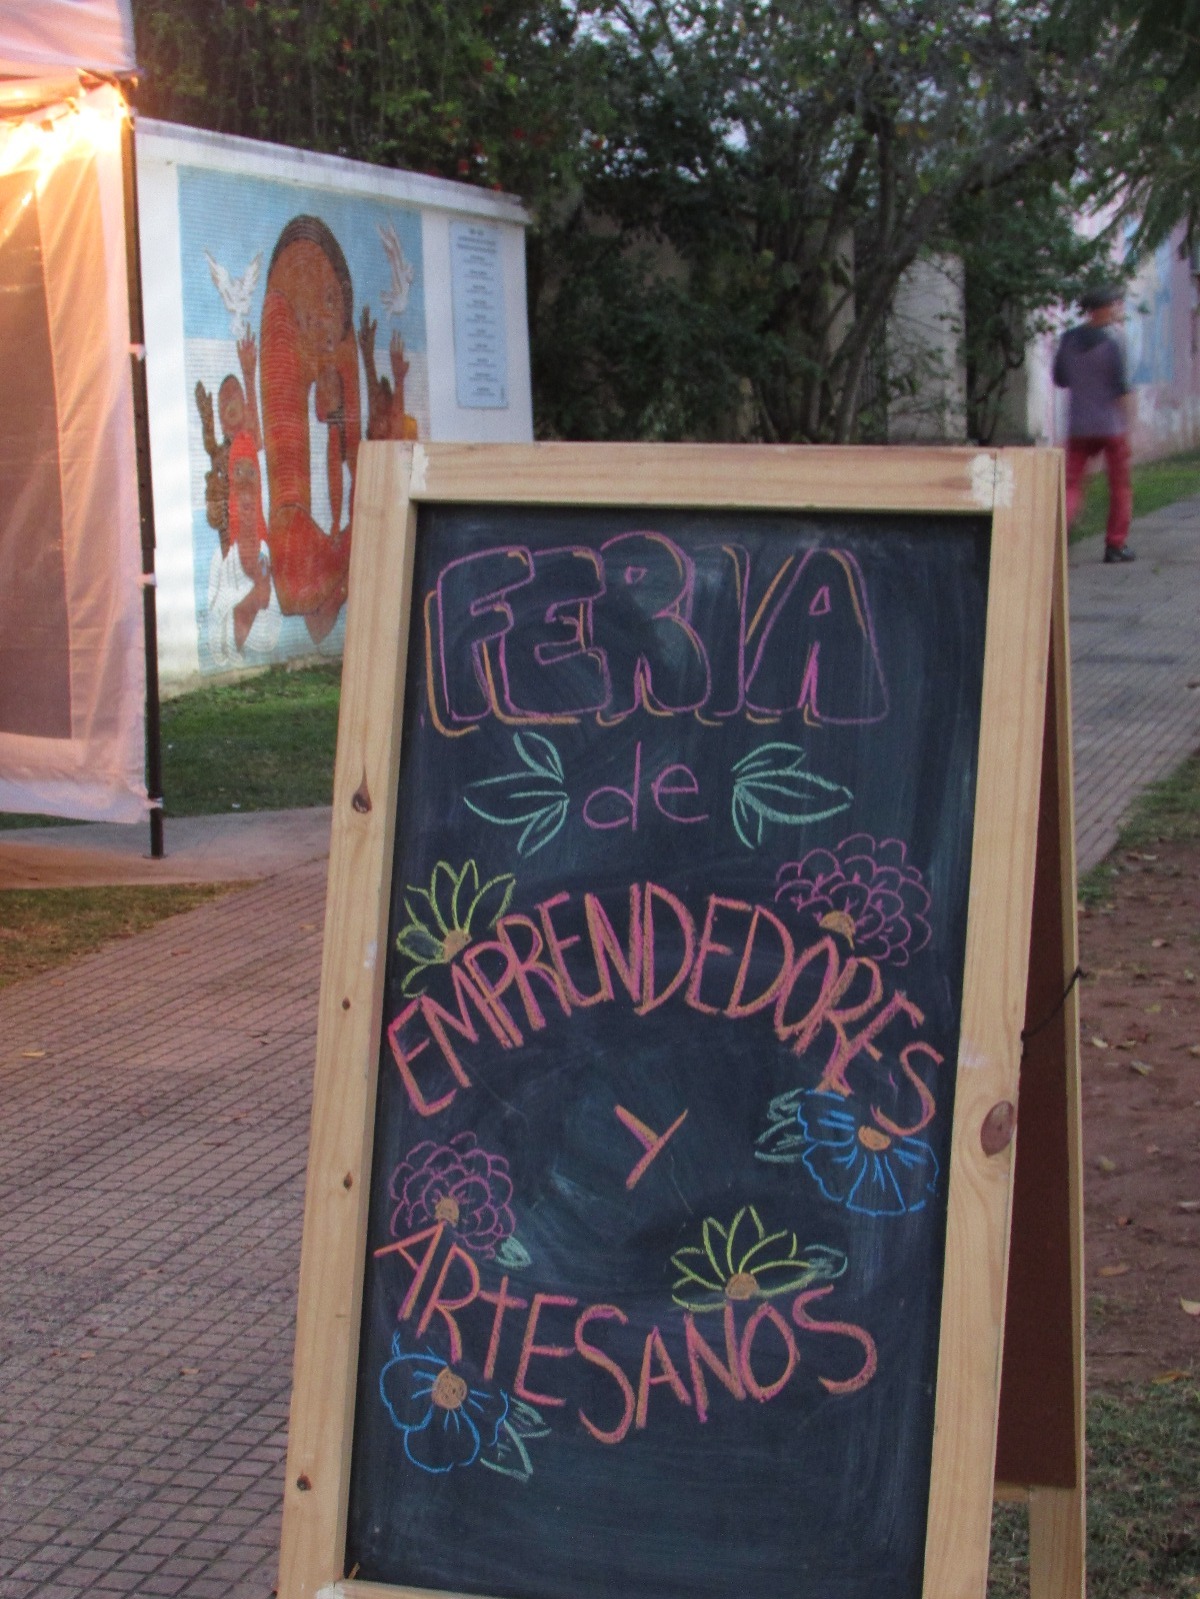 FERIA
de
EMPRENDEDORES
Y
ARTESANOS